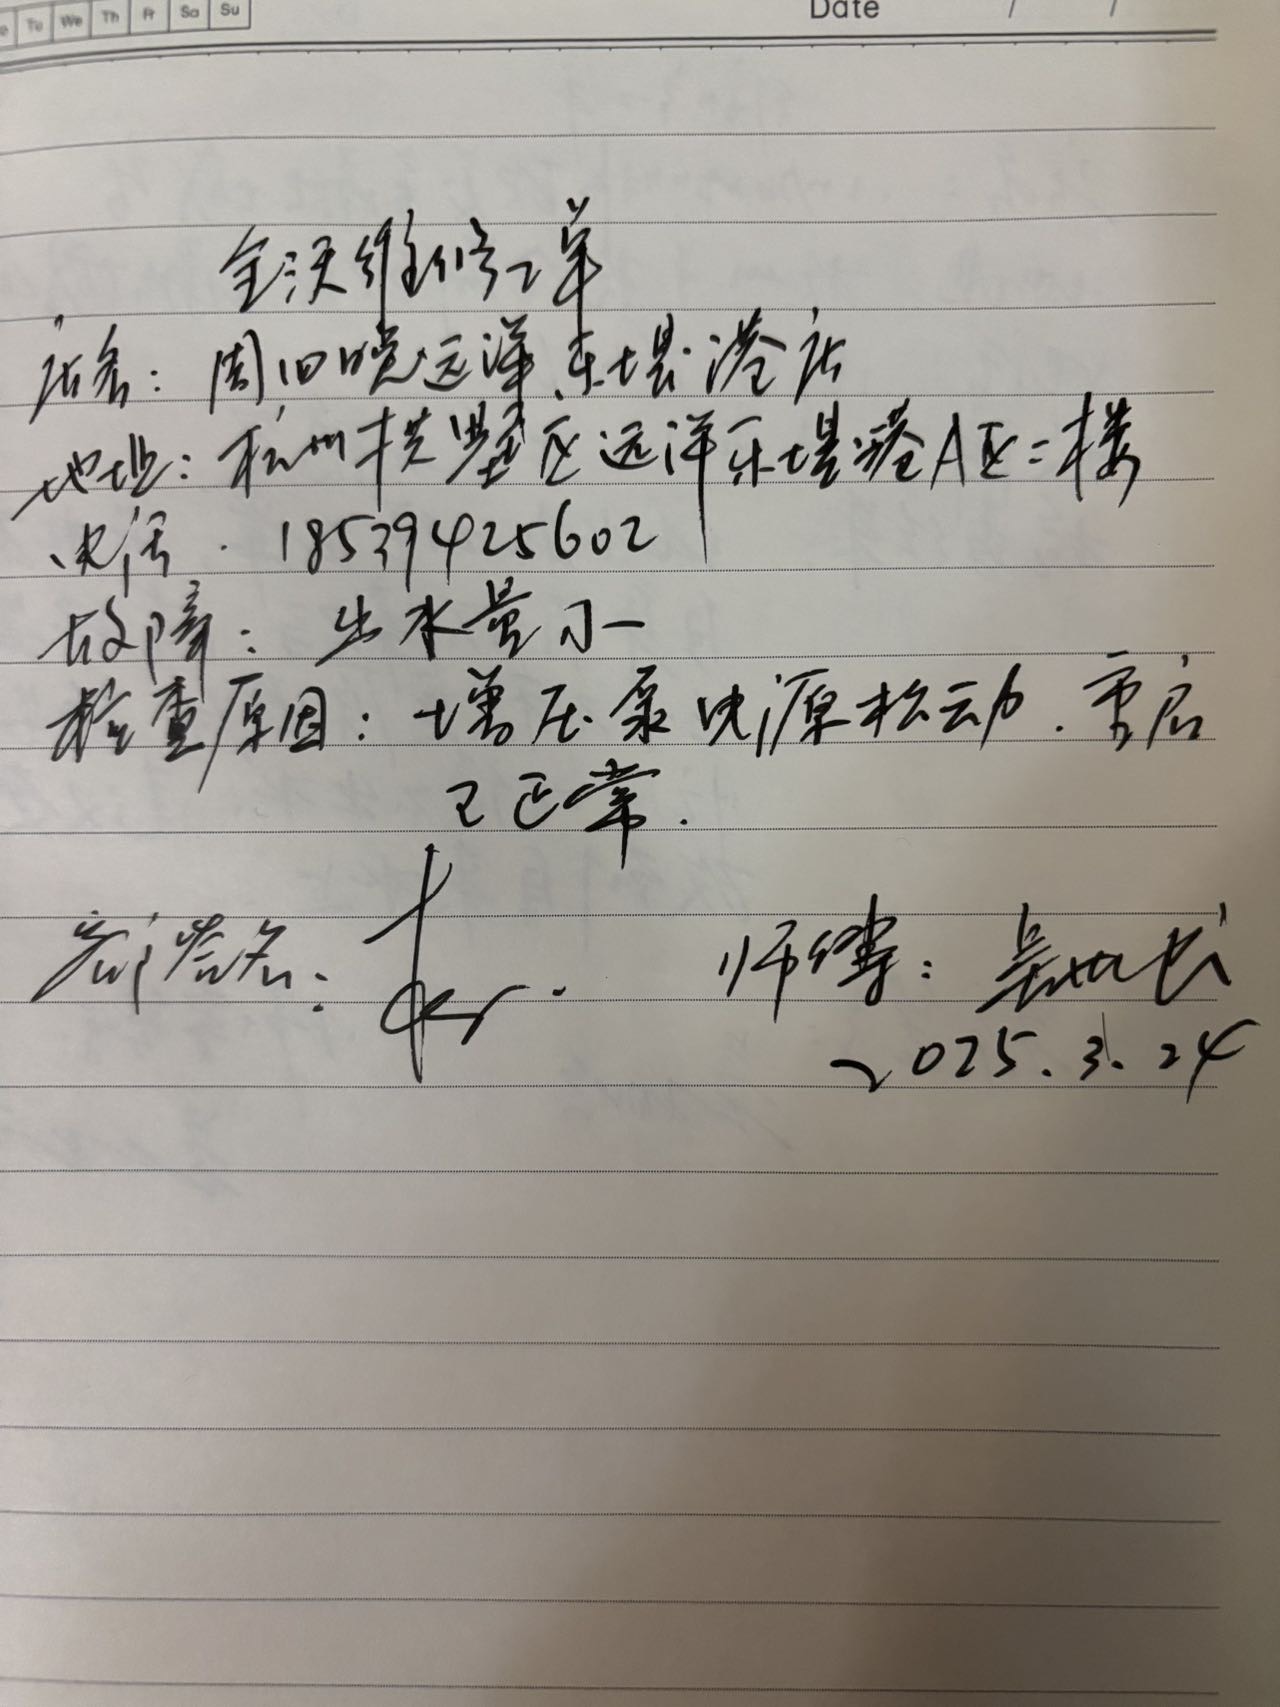 Tu We Th Fr Sa Su
Date / /
全沃维修工单
店名：周四晚远洋乐堤港店
地址：杭州拱墅区远洋乐堤港A区二楼
电话．18539425602
故障：出水量小
检查原因：增压泵电源松动．重启
已正常．
签名：
师傅：吴
2025.3.24